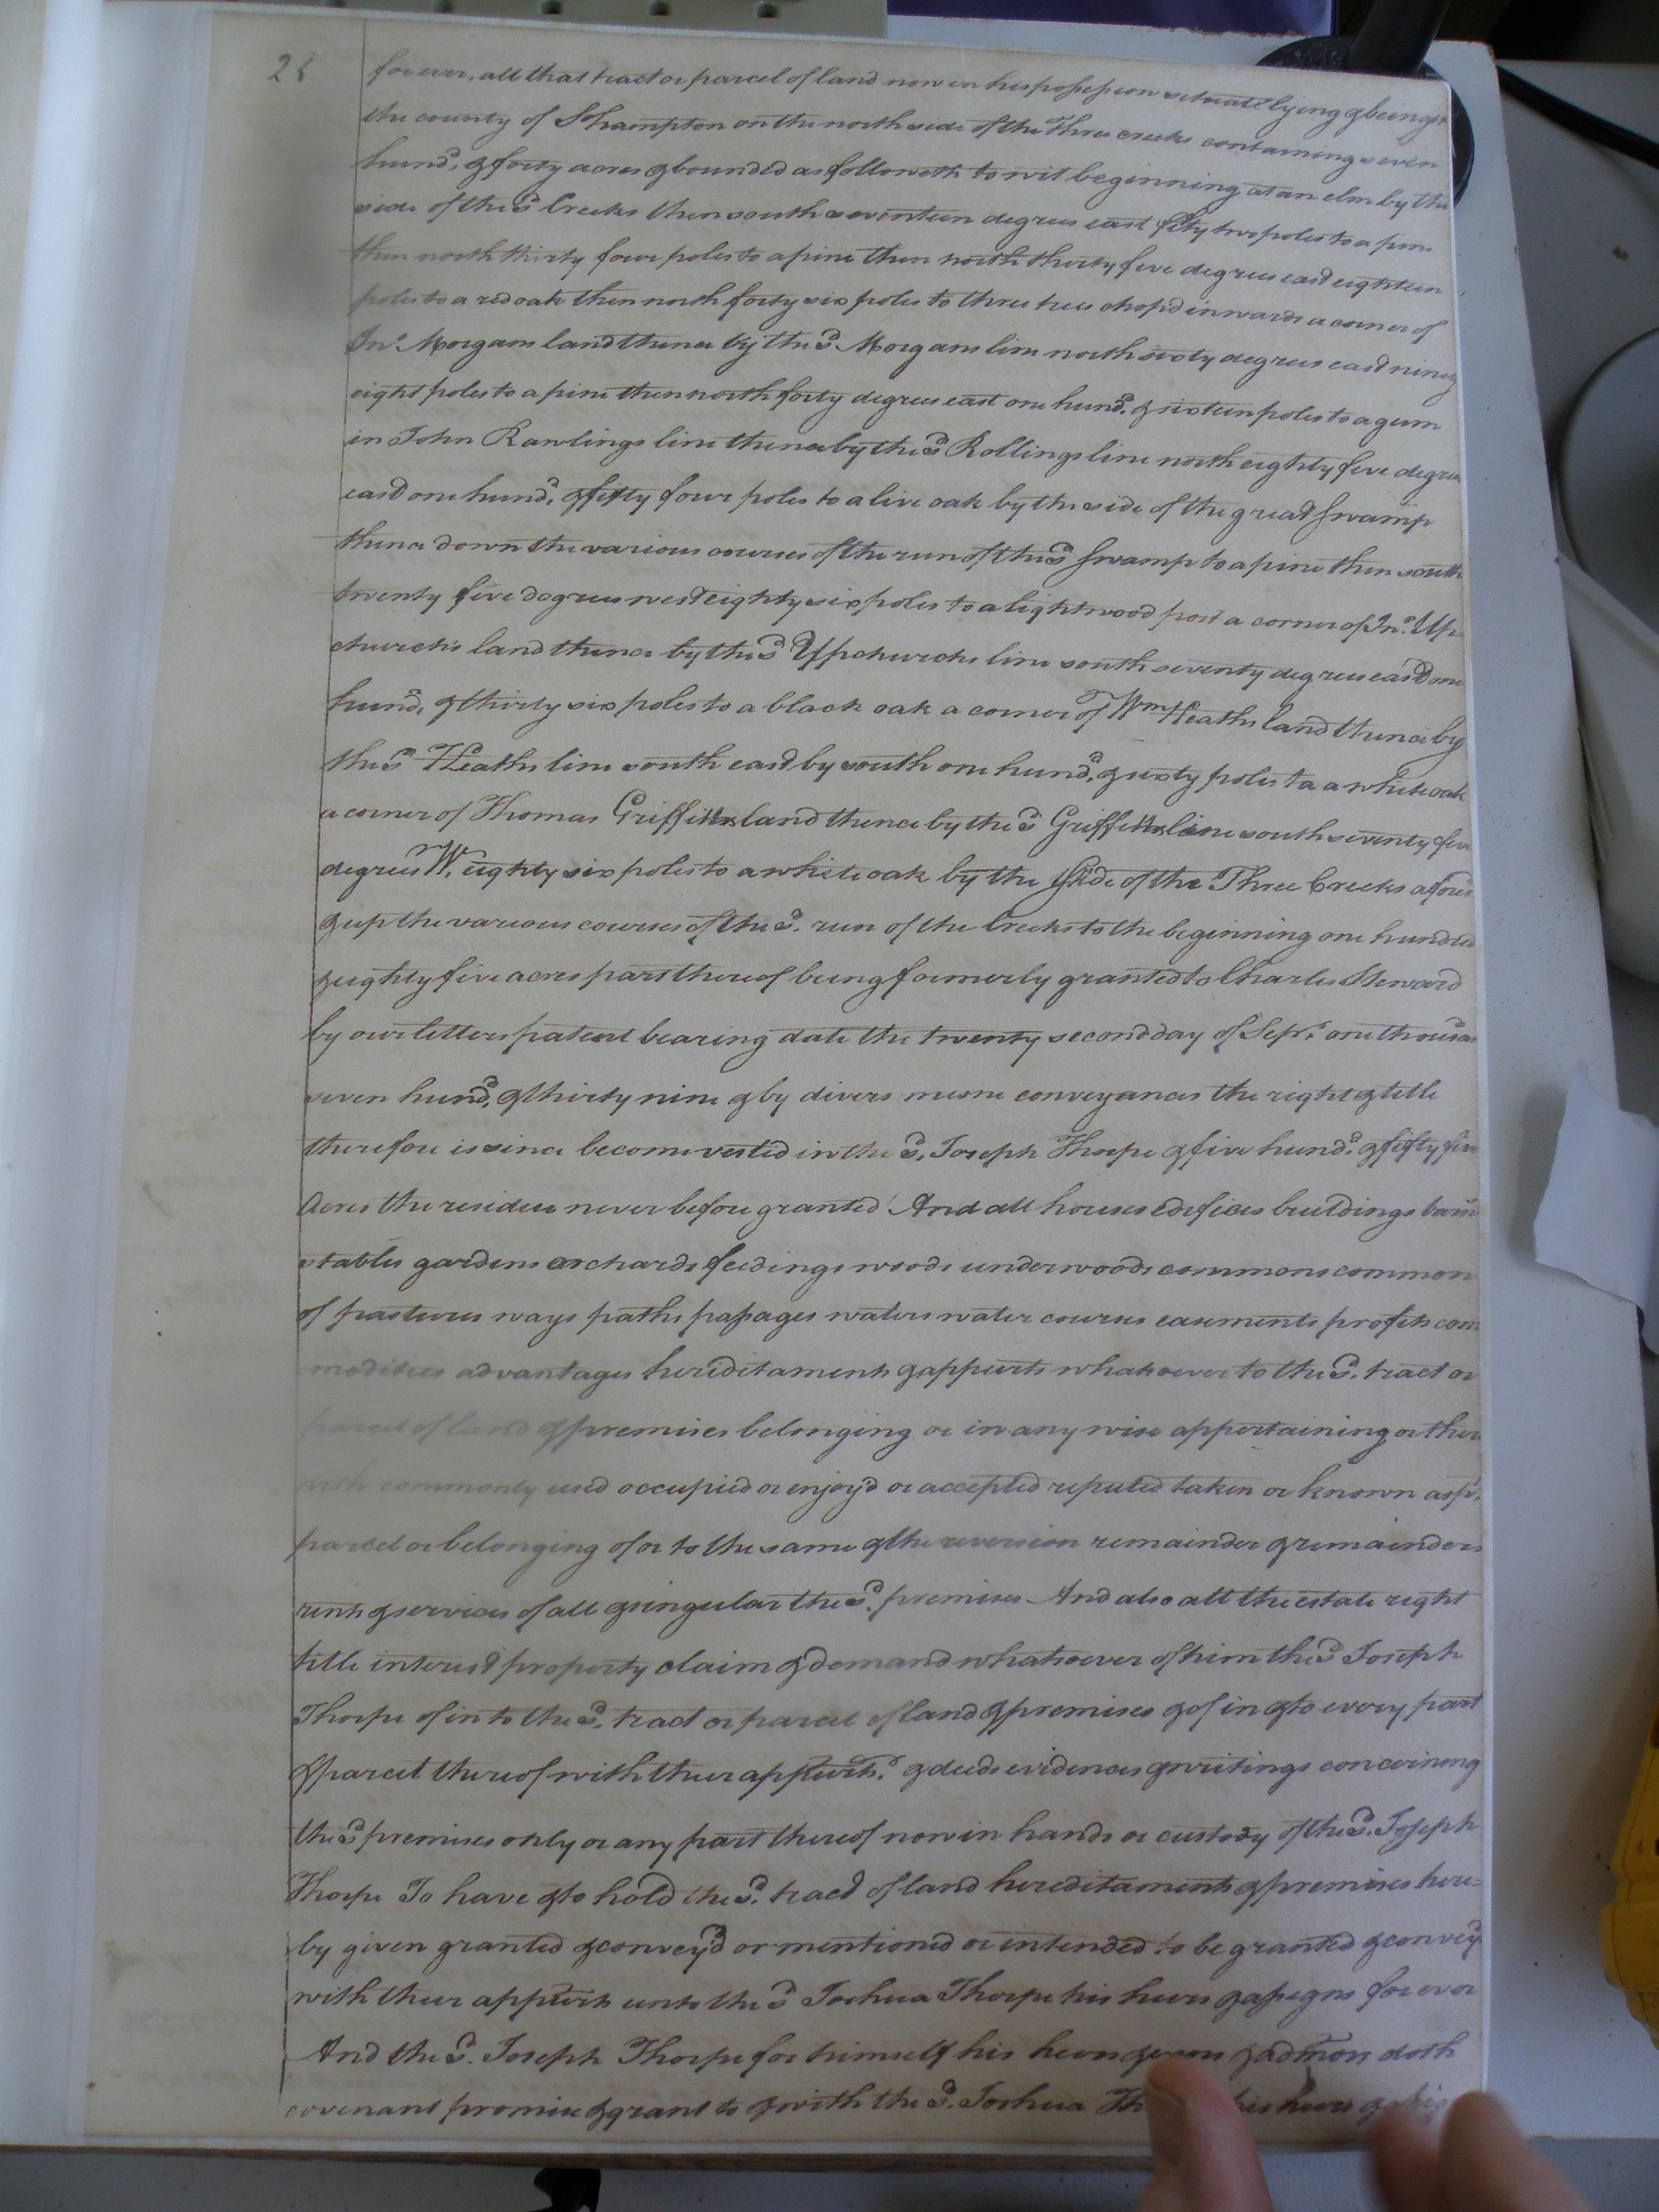 28
for ever, all that tract or parcel of land now in his possession situate lyeing & being in
the county of S.hampton on the north side of the Three creeks containing seven
hund.d & forty acres & bounded as followeth to wit beginning at an elm by the
side of the s.d Creeks then south seventeen degrees east fifty two poles to a pine
then north thirty four poles to a pine then north thirty five degrees east eighteen
poles to a red oak then north forty six poles to three trees chop'd inwards a corner of
Jn.o Morgans land thence by the s.d Morgans line north sixty degrees east ninety
eight poles to a pine then north forty degrees east one hund.d & sixteen poles to a gum
in John Rawlings line thence by the s.d Rollings line north eighty five degrees
east one hund.d & fifty four poles to a live oak by the side of the great swamp
thence down the various courses of the run of the s.d swamp to a pine then south
twenty five degrees west eighty six poles to a lightwood post a corner of Jn.o Up
church's land thence by the s.d Upchurchs line south seventy degrees east one
hund.d & thirty six poles to a black oak a corner of Wm Heaths land thence by
the s.d Heaths line south east by south one hund.d & sixty poles to a white oak
a corner of Thomas Griffiths land thence by the s.d Griffiths line south seventy five
degrees W. eighty six poles to a white oak by the side of the Three Creeks afores.d
& up the various courses of the s.d run of the Creeks to the beginning one hundred
& eighty five acres part thereof being formerly granted to Charles Steward
by our letters patent bearing date the twenty second day of Sep.r one thousan
seven hund.d & thirty nine & by divers mesne conveyances the right & title
therefore is since become vested in the s.d Joseph Thorpe & five hund.d & fifty five
Acres the residue never before granted And all houses edifices buildings barns
stables gardens orchards feedings woods underwoods commons common
of pastures ways paths passages waters water courses easments profits com
modities advantages hereditaments & appurts whatsoever to the s.d tract or
parcel of land & premises belonging or in any wise appertaining or there
with commonly used occupied or enjoy'd or accepted reputed taken or known as p.t
parcel or belonging of or to the same & the reversion remainder & remainders
rents & services of all & singular the s.d premises And also all the estate right
title interest property claim & demand whatsoever of him the s.d Joseph
Thorpe of in to the s.d tract or parcel of land & premises & of in & to every part
& parcel thereof with their appurts. & deeds evidences & writings concerning
the s.d premises only or any part thereof now in hands or custody of the s.d Joseph
Thorpe To have & to hold the s.d tract of land hereditaments & premises here=
by given granted & convey'd or mentioned or intended to be granted & convey'd
with their appurts unto the s.d Joshua Thorpe his heirs & assigns for ever
And the s.d Joseph Thorpe for himself his heirs & admors doth
covenant promise & grant to & with the s.d Joshua his heirs